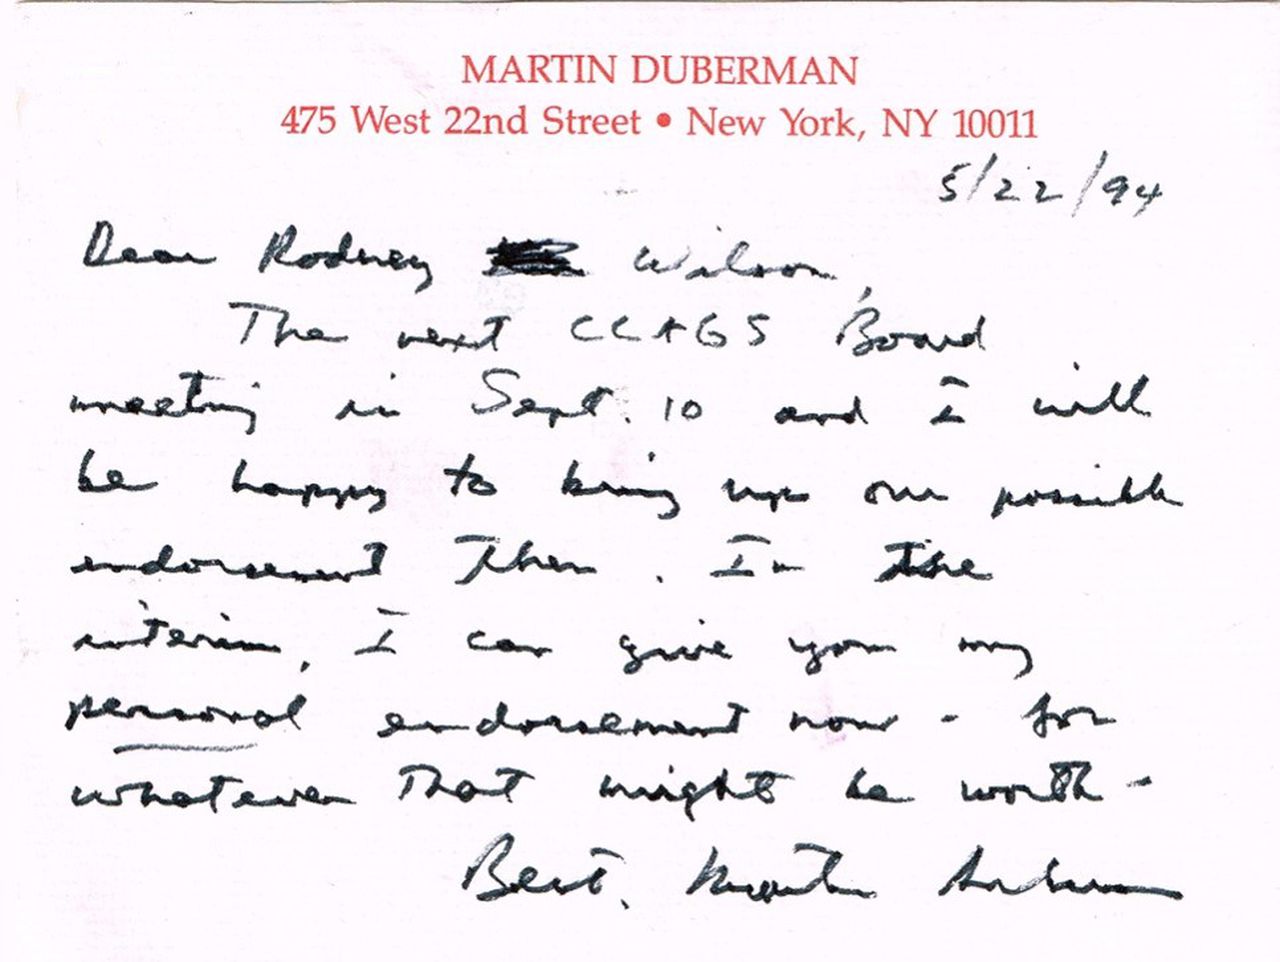 MARTIN DUBERMAN
475 West 22nd Street • New York, NY 10011
5/22/94
Dear Rodney Wilson,
The next CLAGS Board
meeting is Sept. 10 and I will
be happy to bring up our possible
endorsement then. In the
interim, I can give you my
personal endorsement now - for
whatever that might be worth -
Best, Martin Duberman